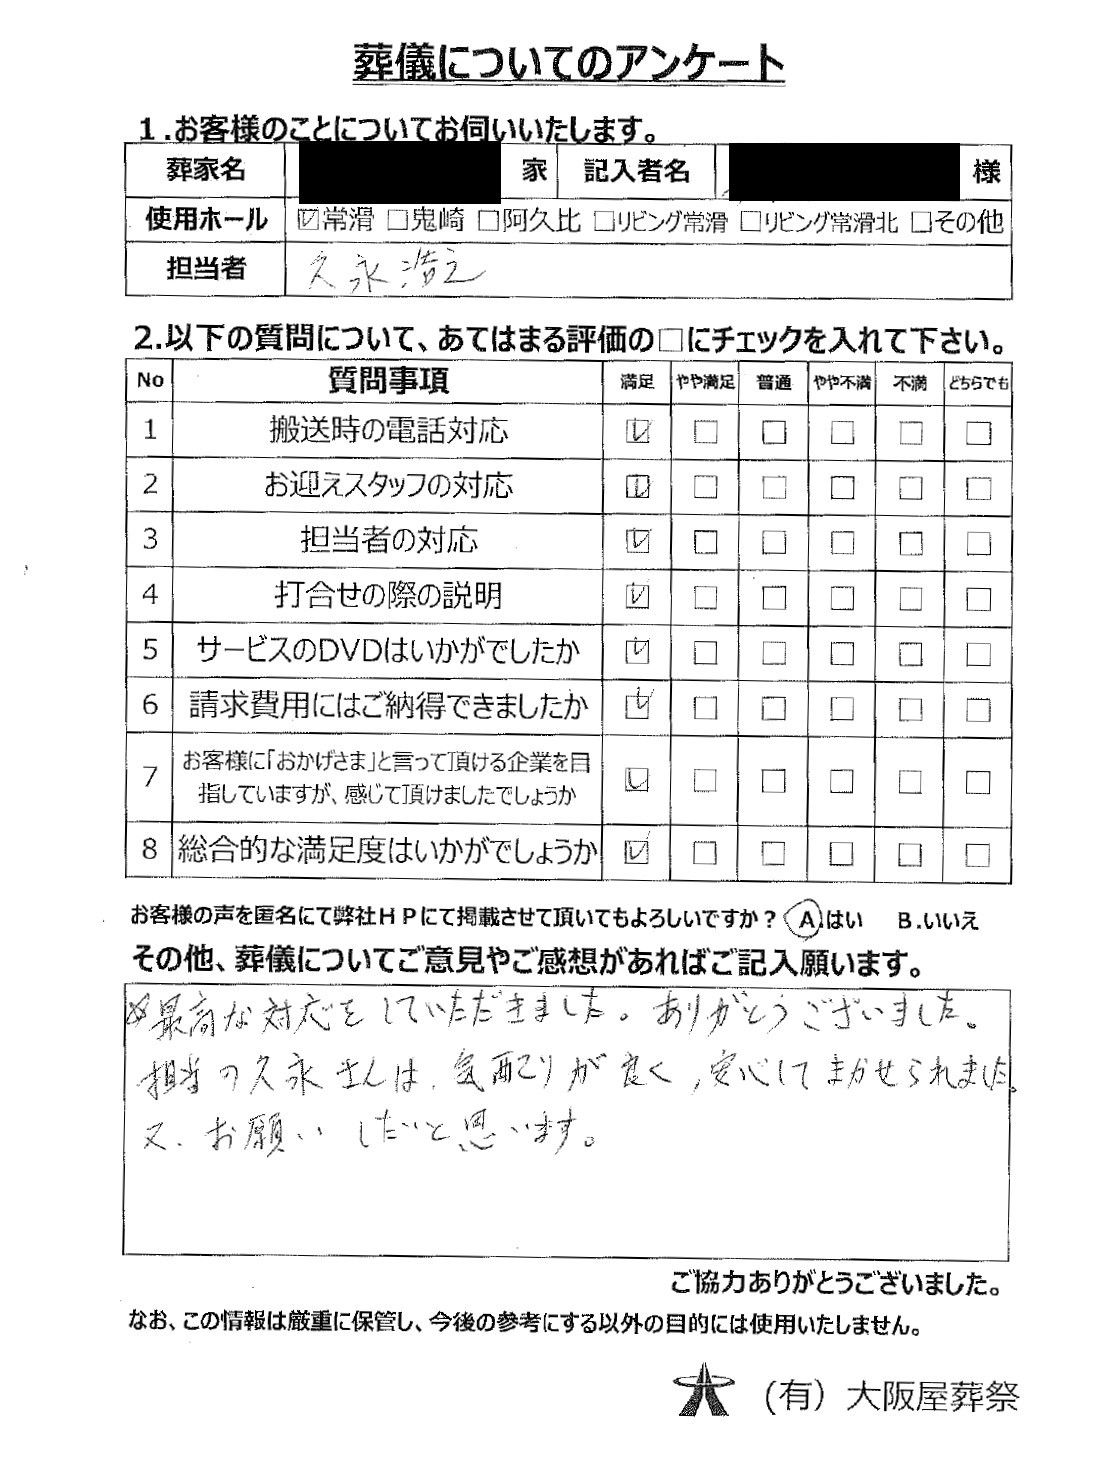 葬儀についてのアンケート
１.お客様のことについてお伺いいたします。
葬家名 家 記入者名 様
使用ホール ☑常滑 □鬼崎 □阿久比 □リビング常滑 □リビング常滑北 □その他
担当者 久永浩之
2.以下の質問について、あてはまる評価の□にチェックを入れて下さい。
No 質問事項 満足 やや満足 普通 やや不満 不満 どちらでも
1 搬送時の電話対応 ☑ □ □ □ □ □
2 お迎えスタッフの対応 ☑ □ □ □ □ □
3 担当者の対応 ☑ □ □ □ □ □
4 打合せの際の説明 ☑ □ □ □ □ □
5 サービスのDVDはいかがでしたか ☑ □ □ □ □ □
6 請求費用にはご納得できましたか ☑ □ □ □ □ □
7 お客様に「おかげさま」と言って頂ける企業を目
指していますが、感じて頂けましたでしょうか ☑ □ □ □ □ □
8 総合的な満足度はいかがでしょうか ☑ □ □ □ □ □
お客様の声を匿名にて弊社ＨＰにて掲載させて頂いてもよろしいですか？ A.はい B.いいえ
その他、葬儀についてご意見やご感想があればご記入願います。
最高な対応をしていただきました。ありがとうございました。
担当の久永さんは、気配りが良く、安心してまかせられました。
又、お願いしたいと思います。
ご協力ありがとうございました。
なお、この情報は厳重に保管し、今後の参考にする以外の目的には使用いたしません。
(有) 大阪屋葬祭